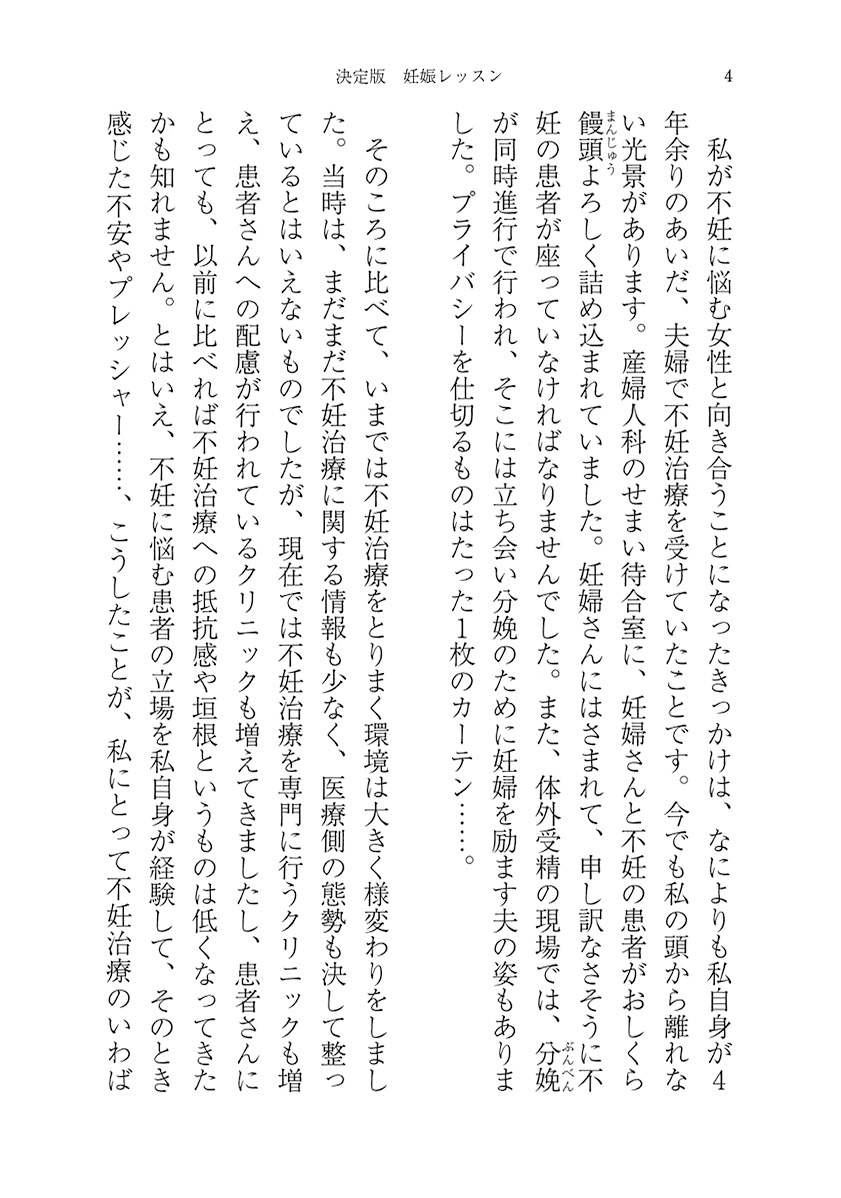 決定版　妊娠レッスン
4
　私が不妊に悩む女性と向き合うことになったきっかけは、なによりも私自身が4
年余りのあいだ、夫婦で不妊治療を受けていたことです。今でも私の頭から離れな
い光景があります。産婦人科のせまい待合室に、妊婦さんと不妊の患者がおしくら
まんじゅう
饅頭よろしく詰め込まれていました。妊婦さんにはさまれて、申し訳なさそうに不
妊の患者が座っていなければなりませんでした。また、体外受精の現場では、分娩
ぶんべん
が同時進行で行われ、そこには立ち会い分娩のために妊婦を励ます夫の姿もありま
した。プライバシーを仕切るものはたった1枚のカーテン……。
　そのころに比べて、いまでは不妊治療をとりまく環境は大きく様変わりをしまし
た。当時は、まだまだ不妊治療に関する情報も少なく、医療側の態勢も決して整っ
ているとはいえないものでしたが、現在では不妊治療を専門に行うクリニックも増
え、患者さんへの配慮が行われているクリニックも増えてきましたし、患者さんに
とっても、以前に比べれば不妊治療への抵抗感や垣根というものは低くなってきた
かも知れません。とはいえ、不妊に悩む患者の立場を私自身が経験して、そのとき
感じた不安やプレッシャー……、こうしたことが、私にとって不妊治療のいわば